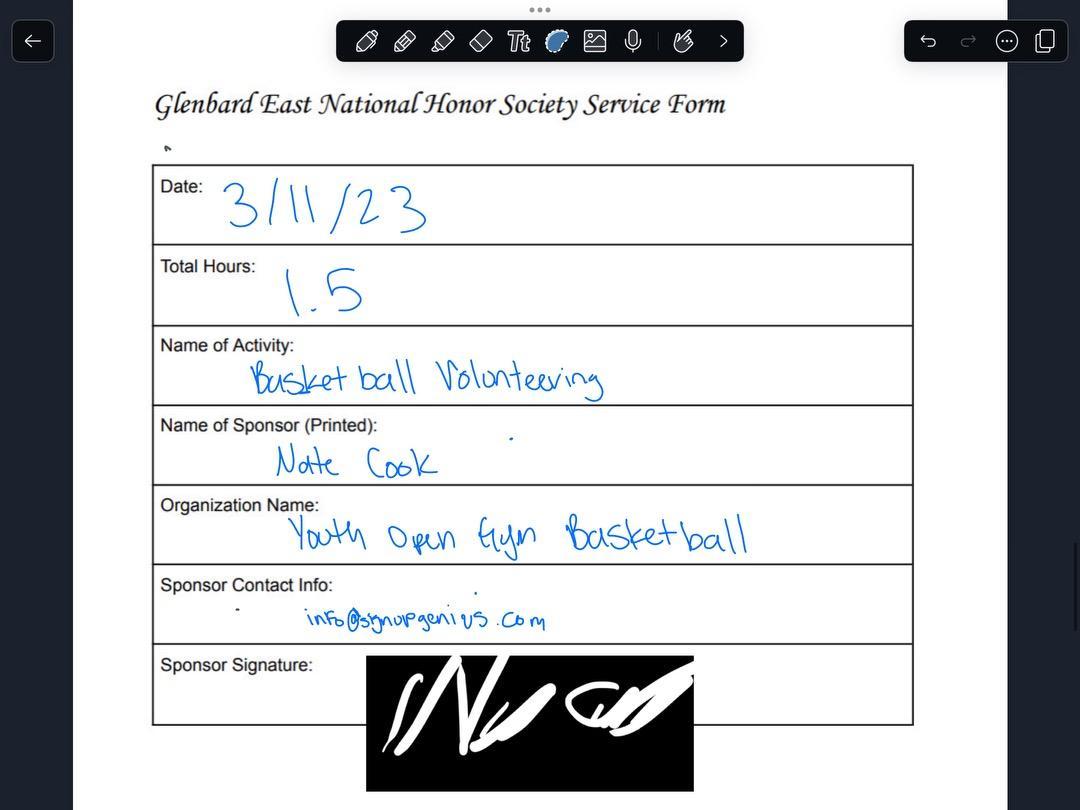 Tt
Glenbard East National Honor Society Service Form
Date: 3/11/23
Total Hours: 1.5
Name of Activity:
Basketball Volunteering
Name of Sponsor (Printed):
Nate Cook
Organization Name:
Youth Open Gym Basketball
Sponsor Contact Info:
info@signupgenius.com
Sponsor Signature: